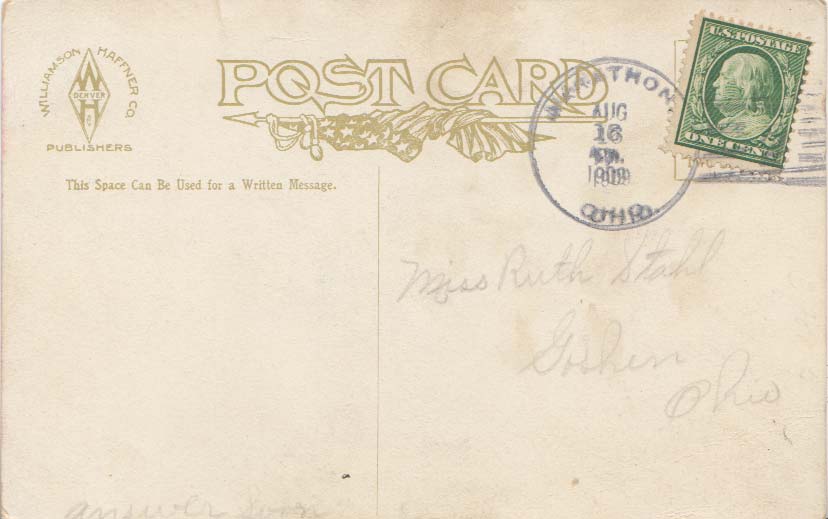 WILLIAMSON HAFFNER CO.
W
DENVER
H
PUBLISHERS
POST CARD
This Space Can Be Used for a Written Message.
MARATHON
AUG
16
1909
OHIO.
U.S. POSTAGE
ONE CENT
Miss Ruth Stahl
Goshen
Ohio
answer soon